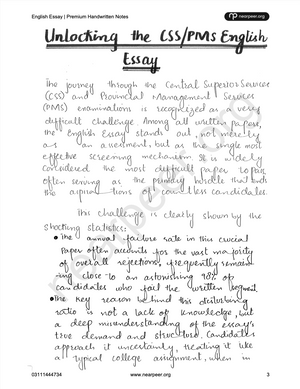 English Essay | Premium Handwritten Notes
nearpeer.org
Unlocking the CSS/PMS English
Essay
The journey through the Central Superior Services
(CSS) and Provincial Management Services
(PMS) examinations is recognized as a very
difficult challenge. Among all written papers,
the English Essay stands out, not merely
as an assessment, but as the single most
effective screening mechanism. It is widely
considered the most difficult paper to pass,
often serving as the primary hurdle that ends
the aspirations of countless candidates.
This challenge is clearly shown by the
shocking statistics:
• The annual failure rate in this crucial
paper often accounts for the vast majority
of overall rejections, frequently remain-
ing close to an astonishing 98% of
candidates who fail the written segment.
• The key reason behind this disturbing
ratio is not a lack of knowledge, but
a deep misunderstanding of the essay's
true demand and structure. Candidates
approach it uncertainly, treating it like
a typical college assignment, when in
03111444734
www.nearpeer.org
3